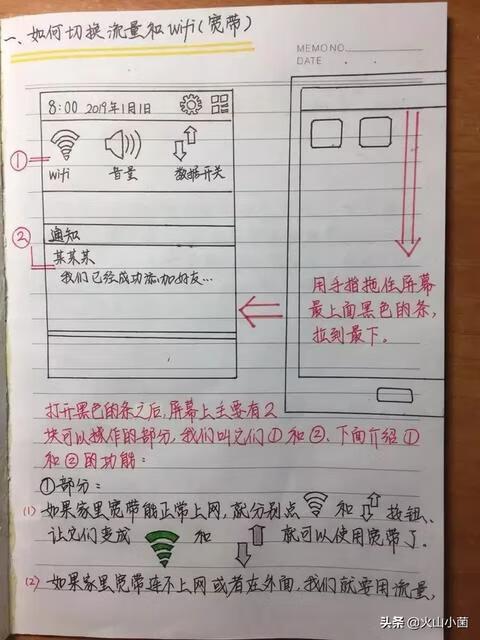 一、如何切换流量和wifi(宽带)
MEMO NO.
DATE
8:00 2019年1月1日
①
wifi 音量 数据开关
②
通知
某某某
我们已经成功添加好友…
用手指拖住屏幕
最上面黑色的条,
拉到最下。
打开黑色的条之后,屏幕上主要有2
块可以操作的部分,我们叫它们①和②.下面介绍①
和②的功能:
①部分:
(1) 如果家里宽带能正常上网,就分别点 和 按钮、
让它们变成 和 就可以使用宽带了.
(2) 如果家里宽带连不上网或者在外面,我们就要用流量,
头条 @火山小菌